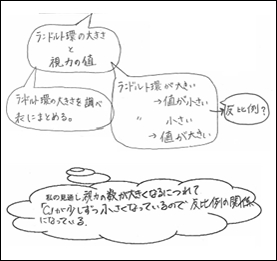 ランドルト環の大きさ
と
視力の値
ランドルト環の大きさを調べ
表にまとめる。
ランドルト環が大きい
→値が小さい
〃 小さい
→値が大きい
反比例?
私の見通し 視力の数が大きくなるにつれて
「C」が少しずつ小さくなっているので反比例の関係
になっている。